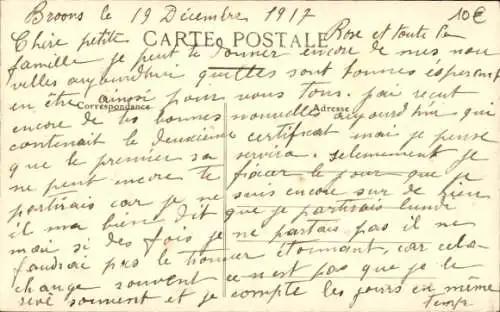 Broons le 19 Décembre 1917
10€
Chère petite Rose et toute la
CARTE POSTALE
famille je peut te donner encore de mes nou
velles aujourd'hui qu'elles sont bonnes éspérant
en être ainsi pour vous tous. j'ai recut
Correspondance Adresse
encore de tes bonnes nouvelles aujourd'hui qui
contenait le deuxième certificat mai je pense
que le premier sa servira. selemement je
ne peut encore te fixer le jour que je
partirais car je ne suis encore sur de bien
il ma bien dit que je partirais lundi
mai si des fois je ne partais pas il ne
faudrai pas le tonner étonnant, car cela
change souvent ce n'est pas que je le
rêve souvent et je compte les jours en même
temps